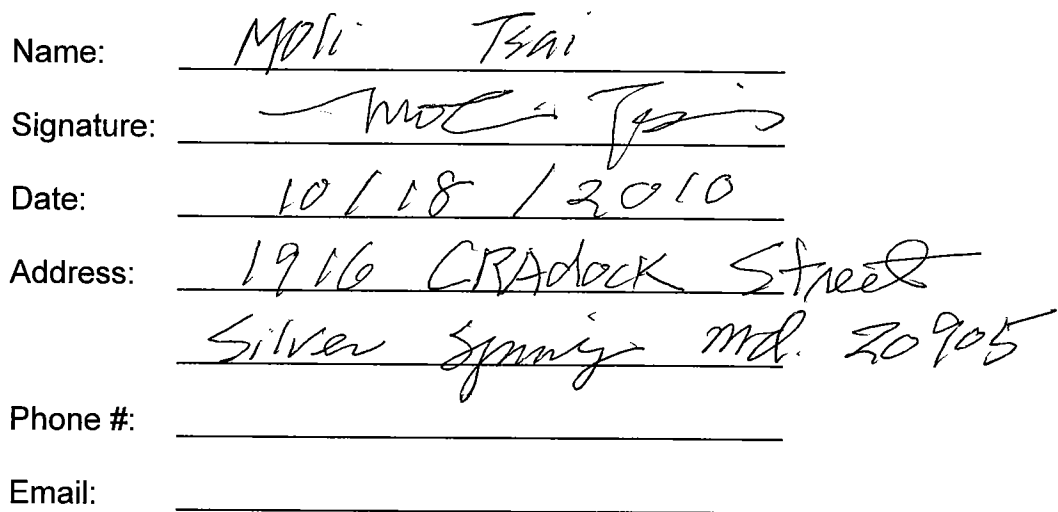 Name: Moli Tsai
Signature: Moli Tsai
Date: 10/18/2010
Address: 1916 CRAdock Street
Silver Spring Md. 20905
Phone #:
Email: